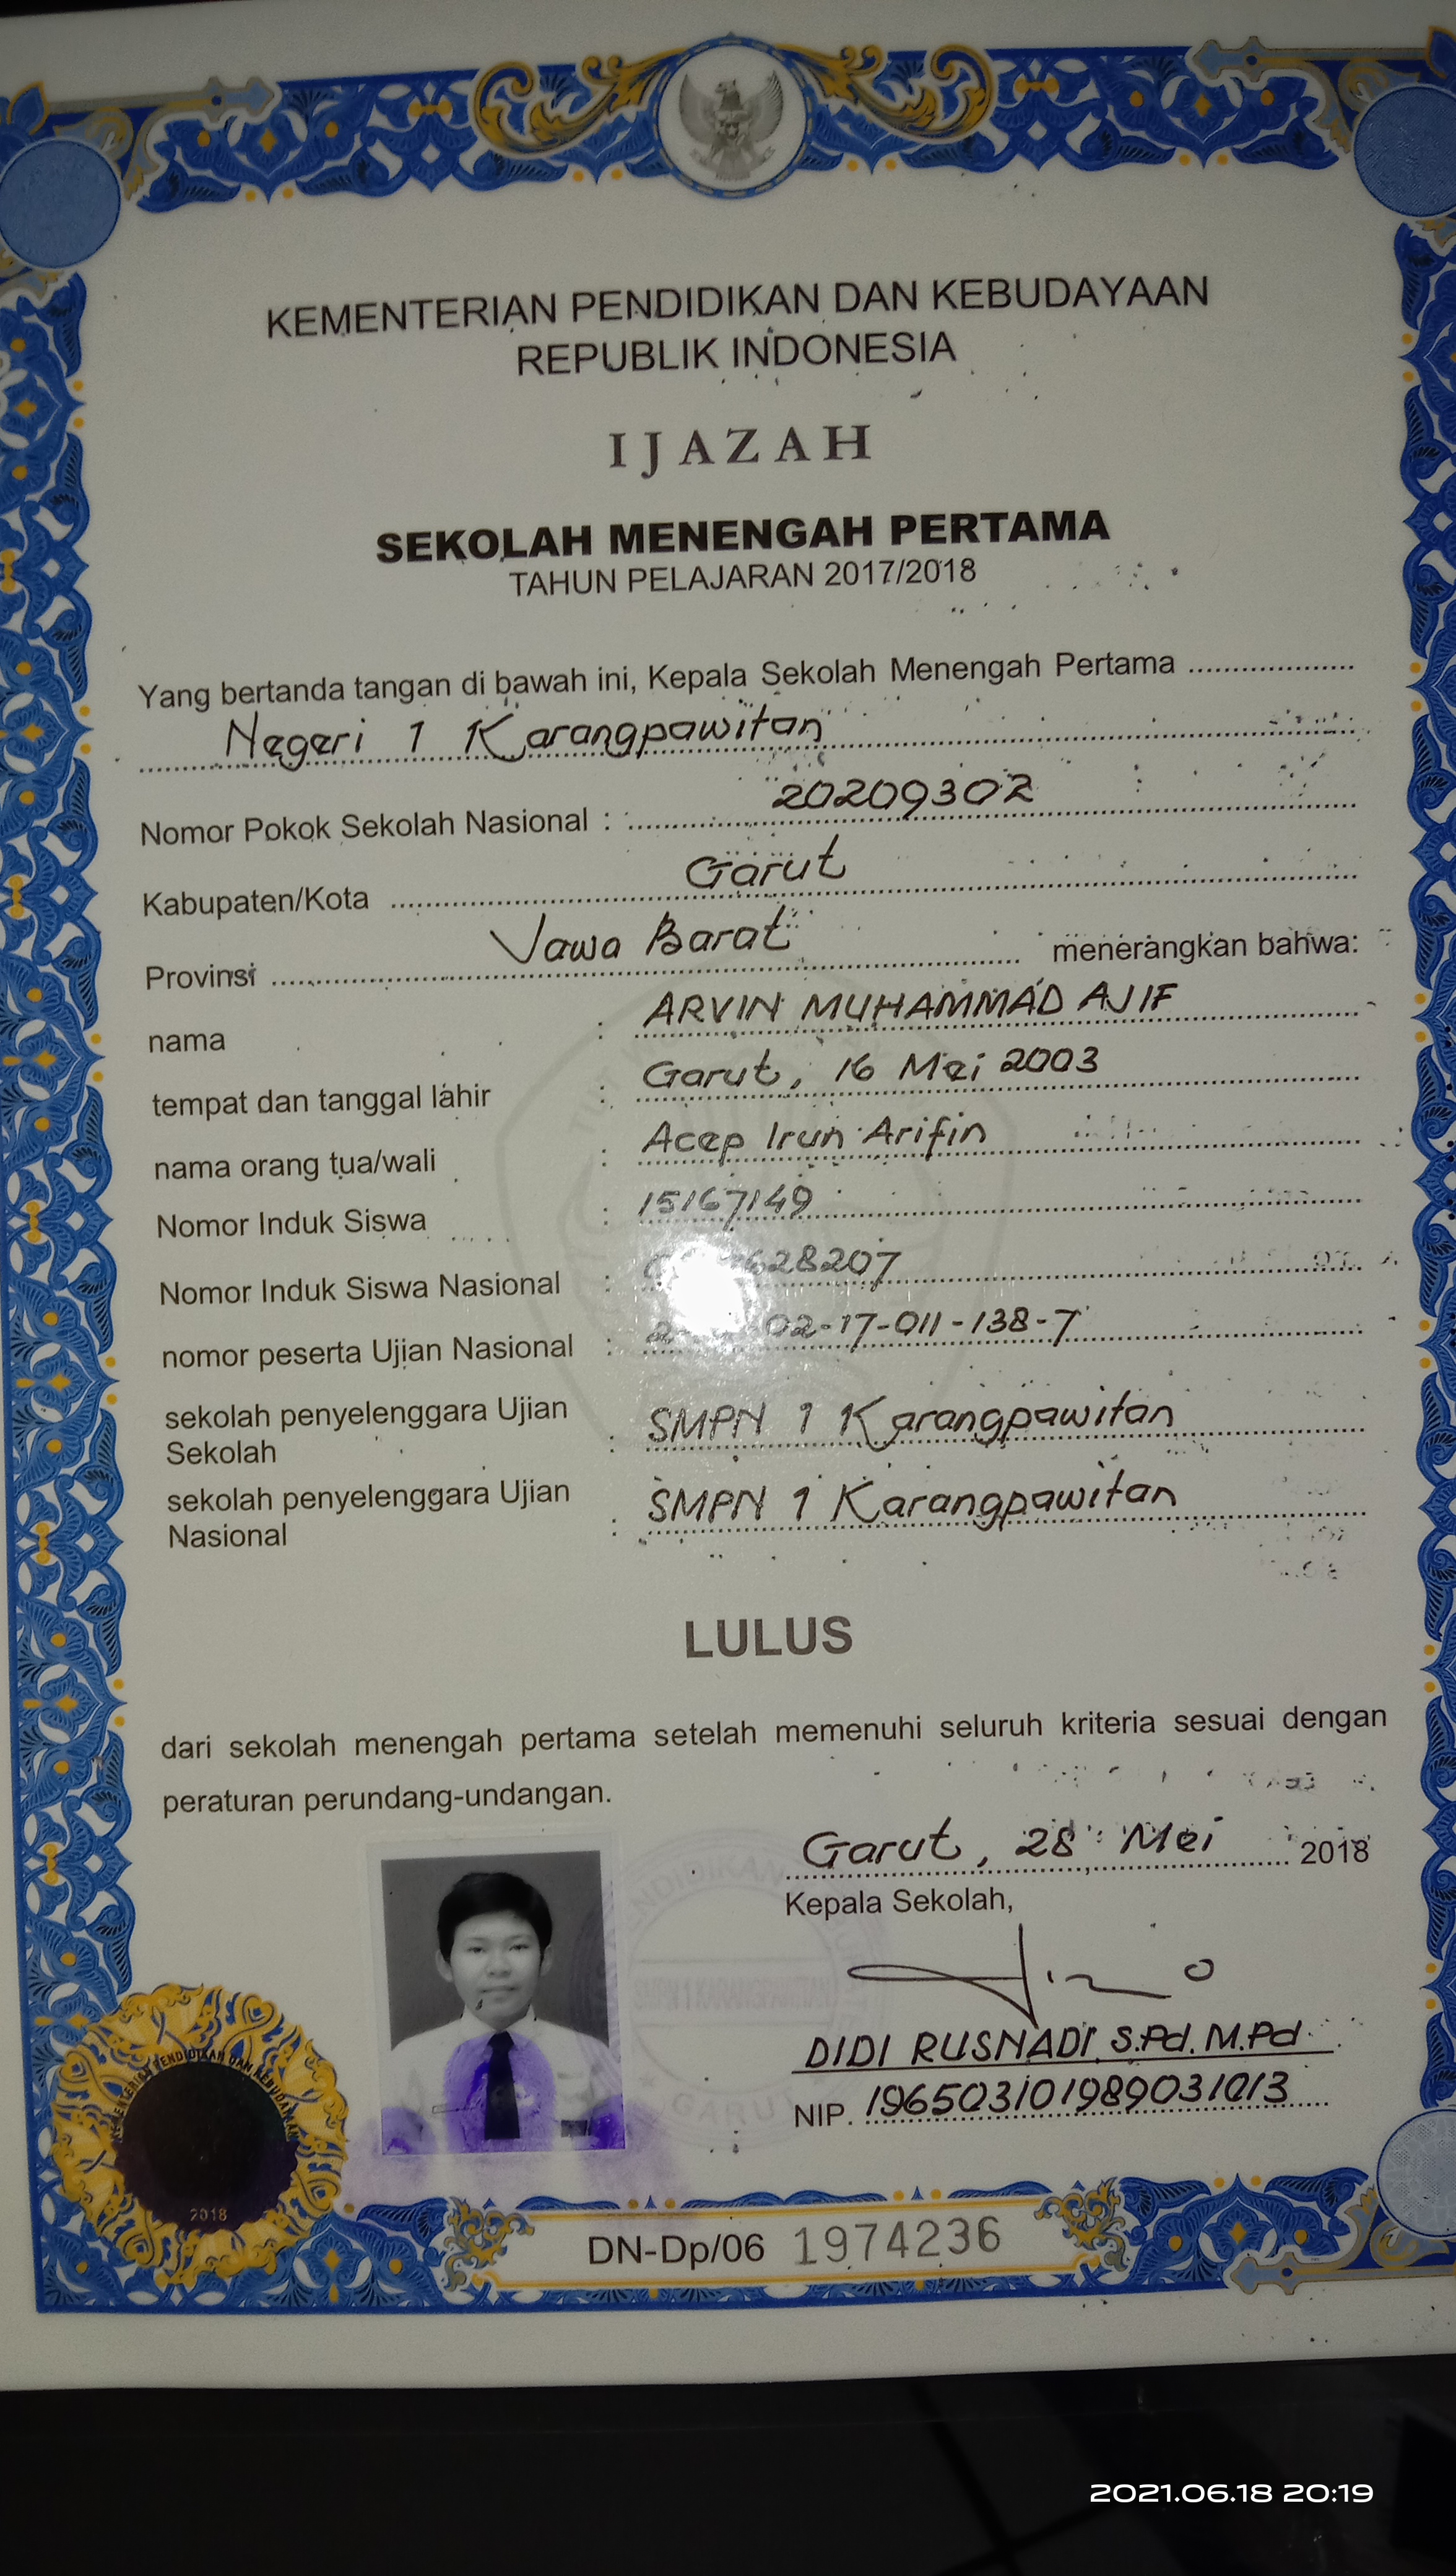 KEMENTERIAN PENDIDIKAN DAN KEBUDAYAAN
REPUBLIK INDONESIA
IJAZAH
SEKOLAH MENENGAH PERTAMA
TAHUN PELAJARAN 2017/2018
Yang bertanda tangan di bawah ini, Kepala Sekolah Menengah Pertama
Negeri 1 Karangpawitan
Nomor Pokok Sekolah Nasional : 20209302
Kabupaten/Kota Garut
Provinsi Jawa Barat menerangkan bahwa:
nama : ARVIN MUHAMMAD AJIF
tempat dan tanggal lahir : Garut, 16 Mei 2003
nama orang tua/wali : Acep Irun Arifin
Nomor Induk Siswa : 15167149
Nomor Induk Siswa Nasional : 
nomor peserta Ujian Nasional : 02-17-011-138-7
sekolah penyelenggara Ujian
Sekolah : SMPN 1 Karangpawitan
sekolah penyelenggara Ujian
Nasional : SMPN 1 Karangpawitan
LULUS
dari sekolah menengah pertama setelah memenuhi seluruh kriteria sesuai dengan
peraturan perundang-undangan.
Garut, 28 Mei 2018
Kepala Sekolah,
DIDI RUSNADI S.Pd. M.Pd
NIP. 196503101989031013
KEMENTERIAN PENDIDIKAN DAN KEBUDAYAAN
2018
GARUT
DN-Dp/06 1974236
2021.06.18 20:19